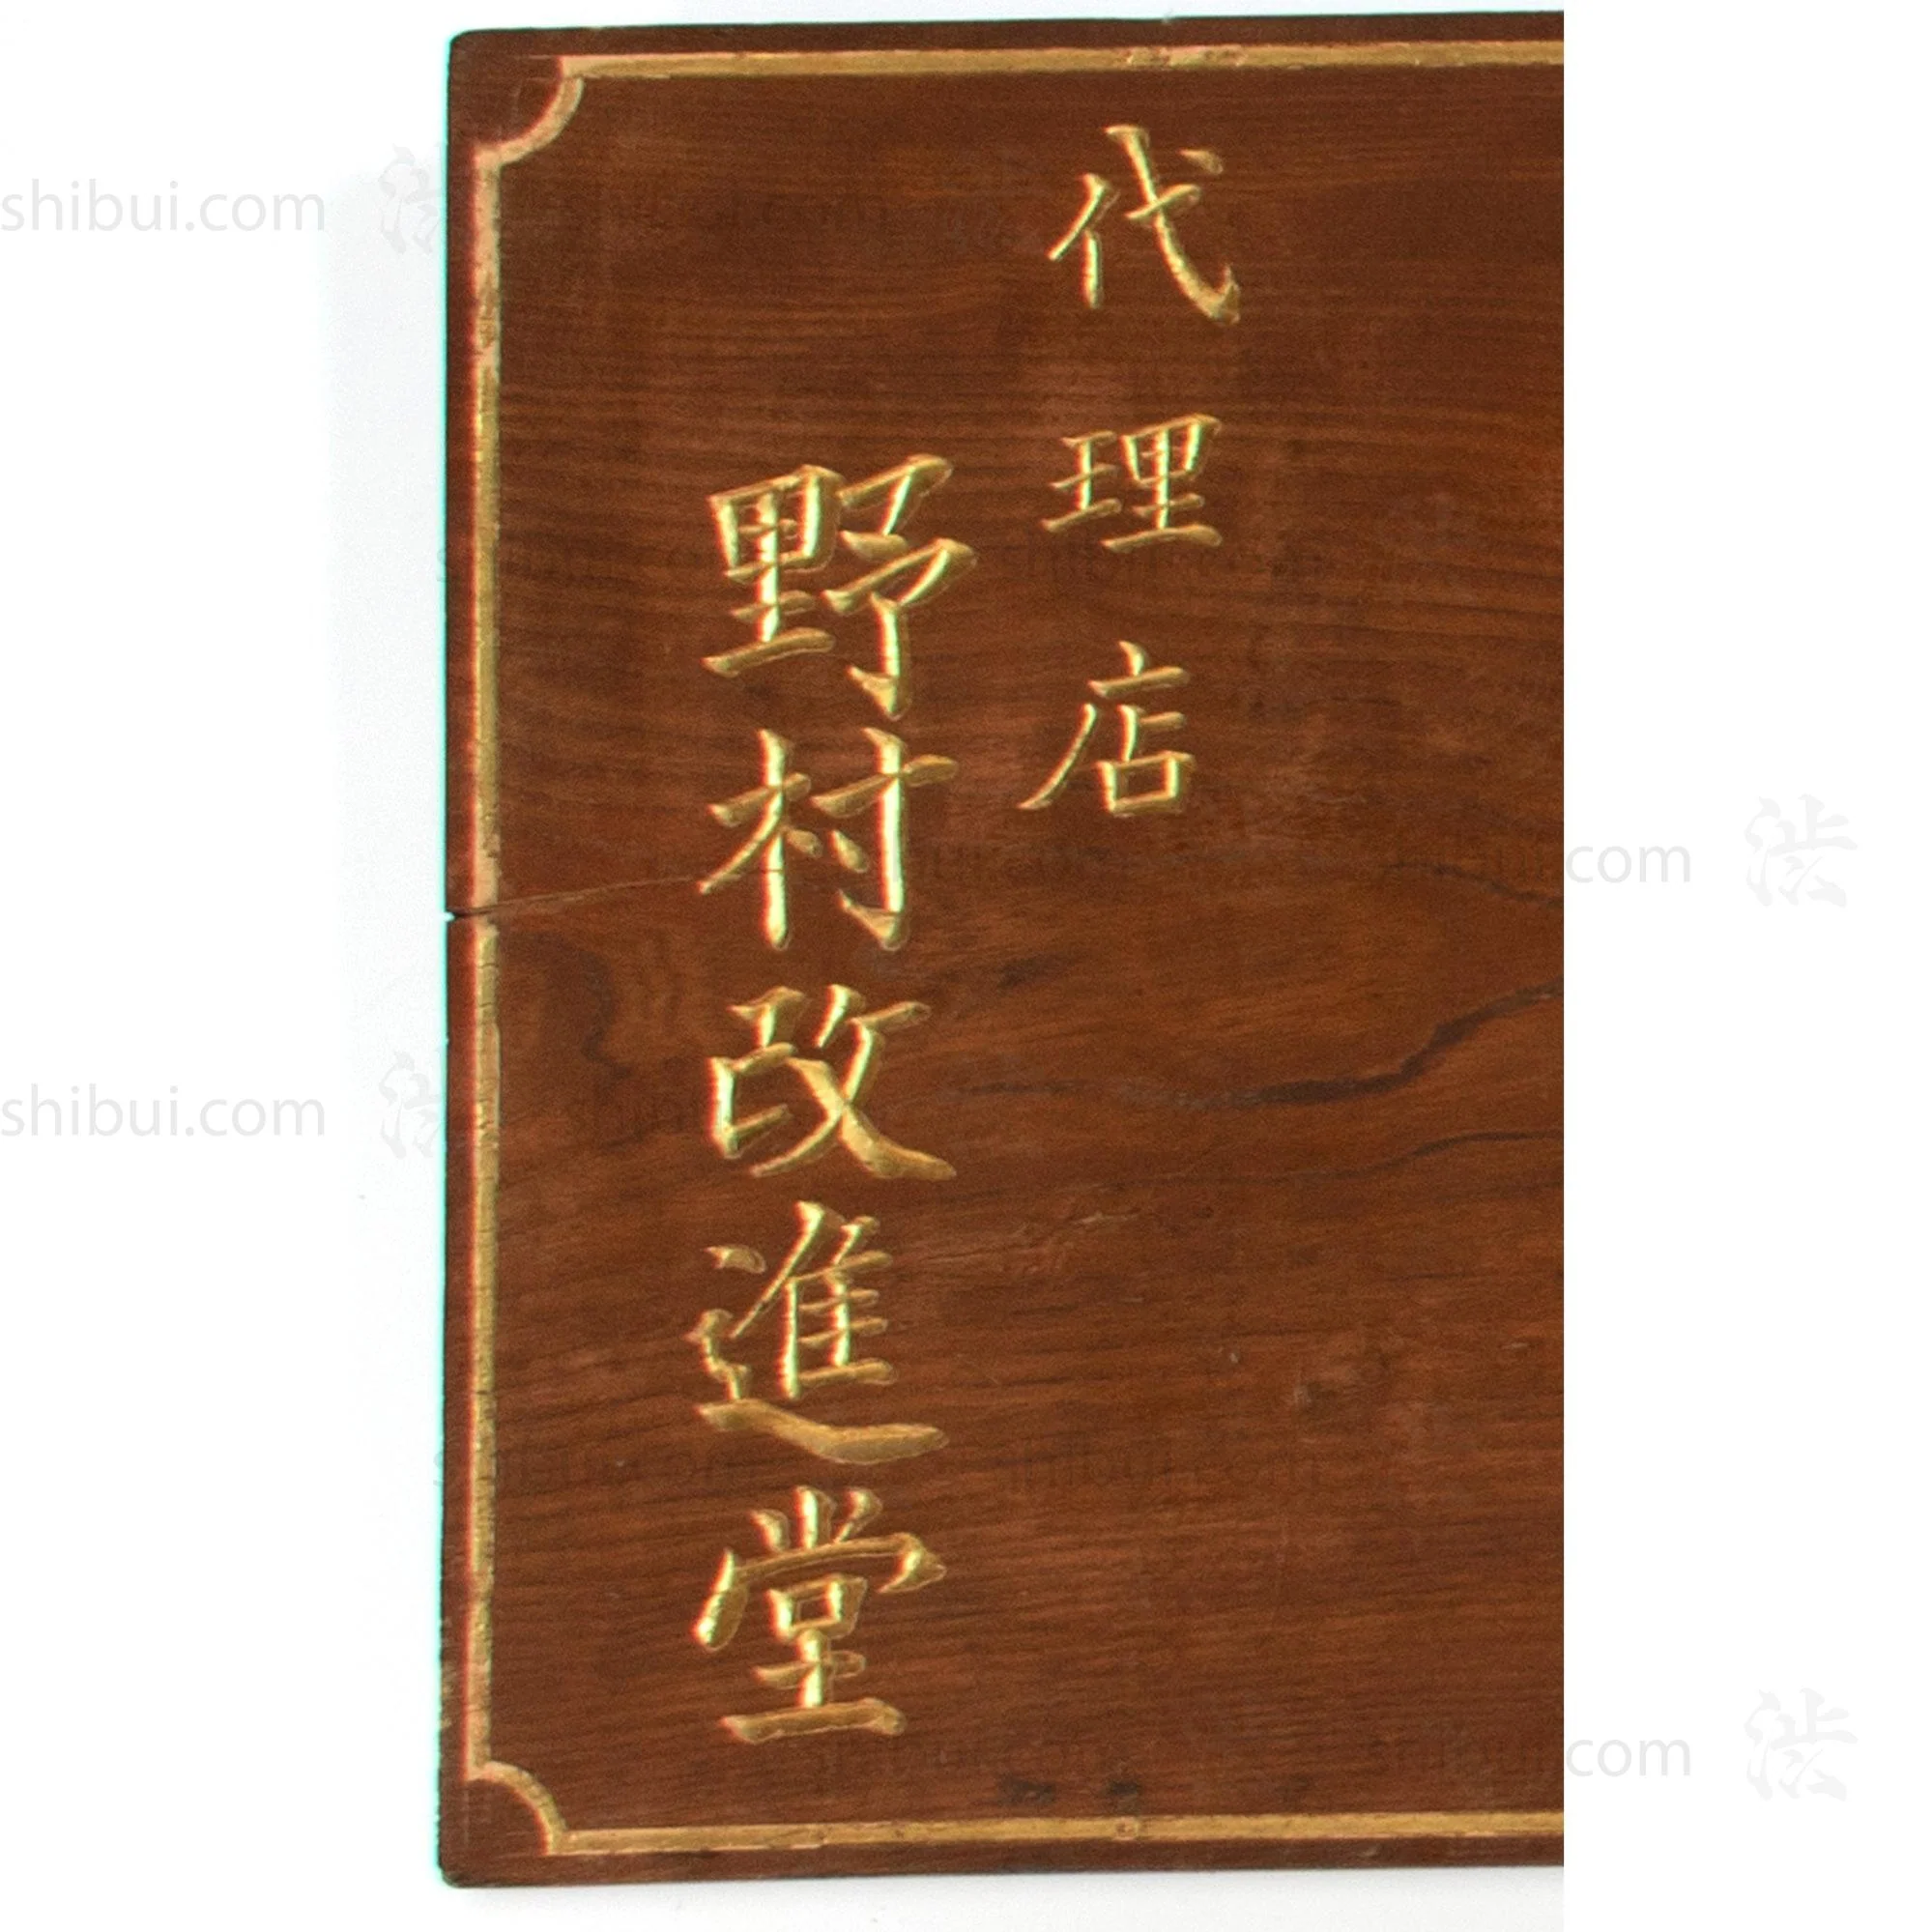 代理店
野村改進堂
shibui.com 渋
shibui.com 渋
shibui.com 渋
shibui.com 渋